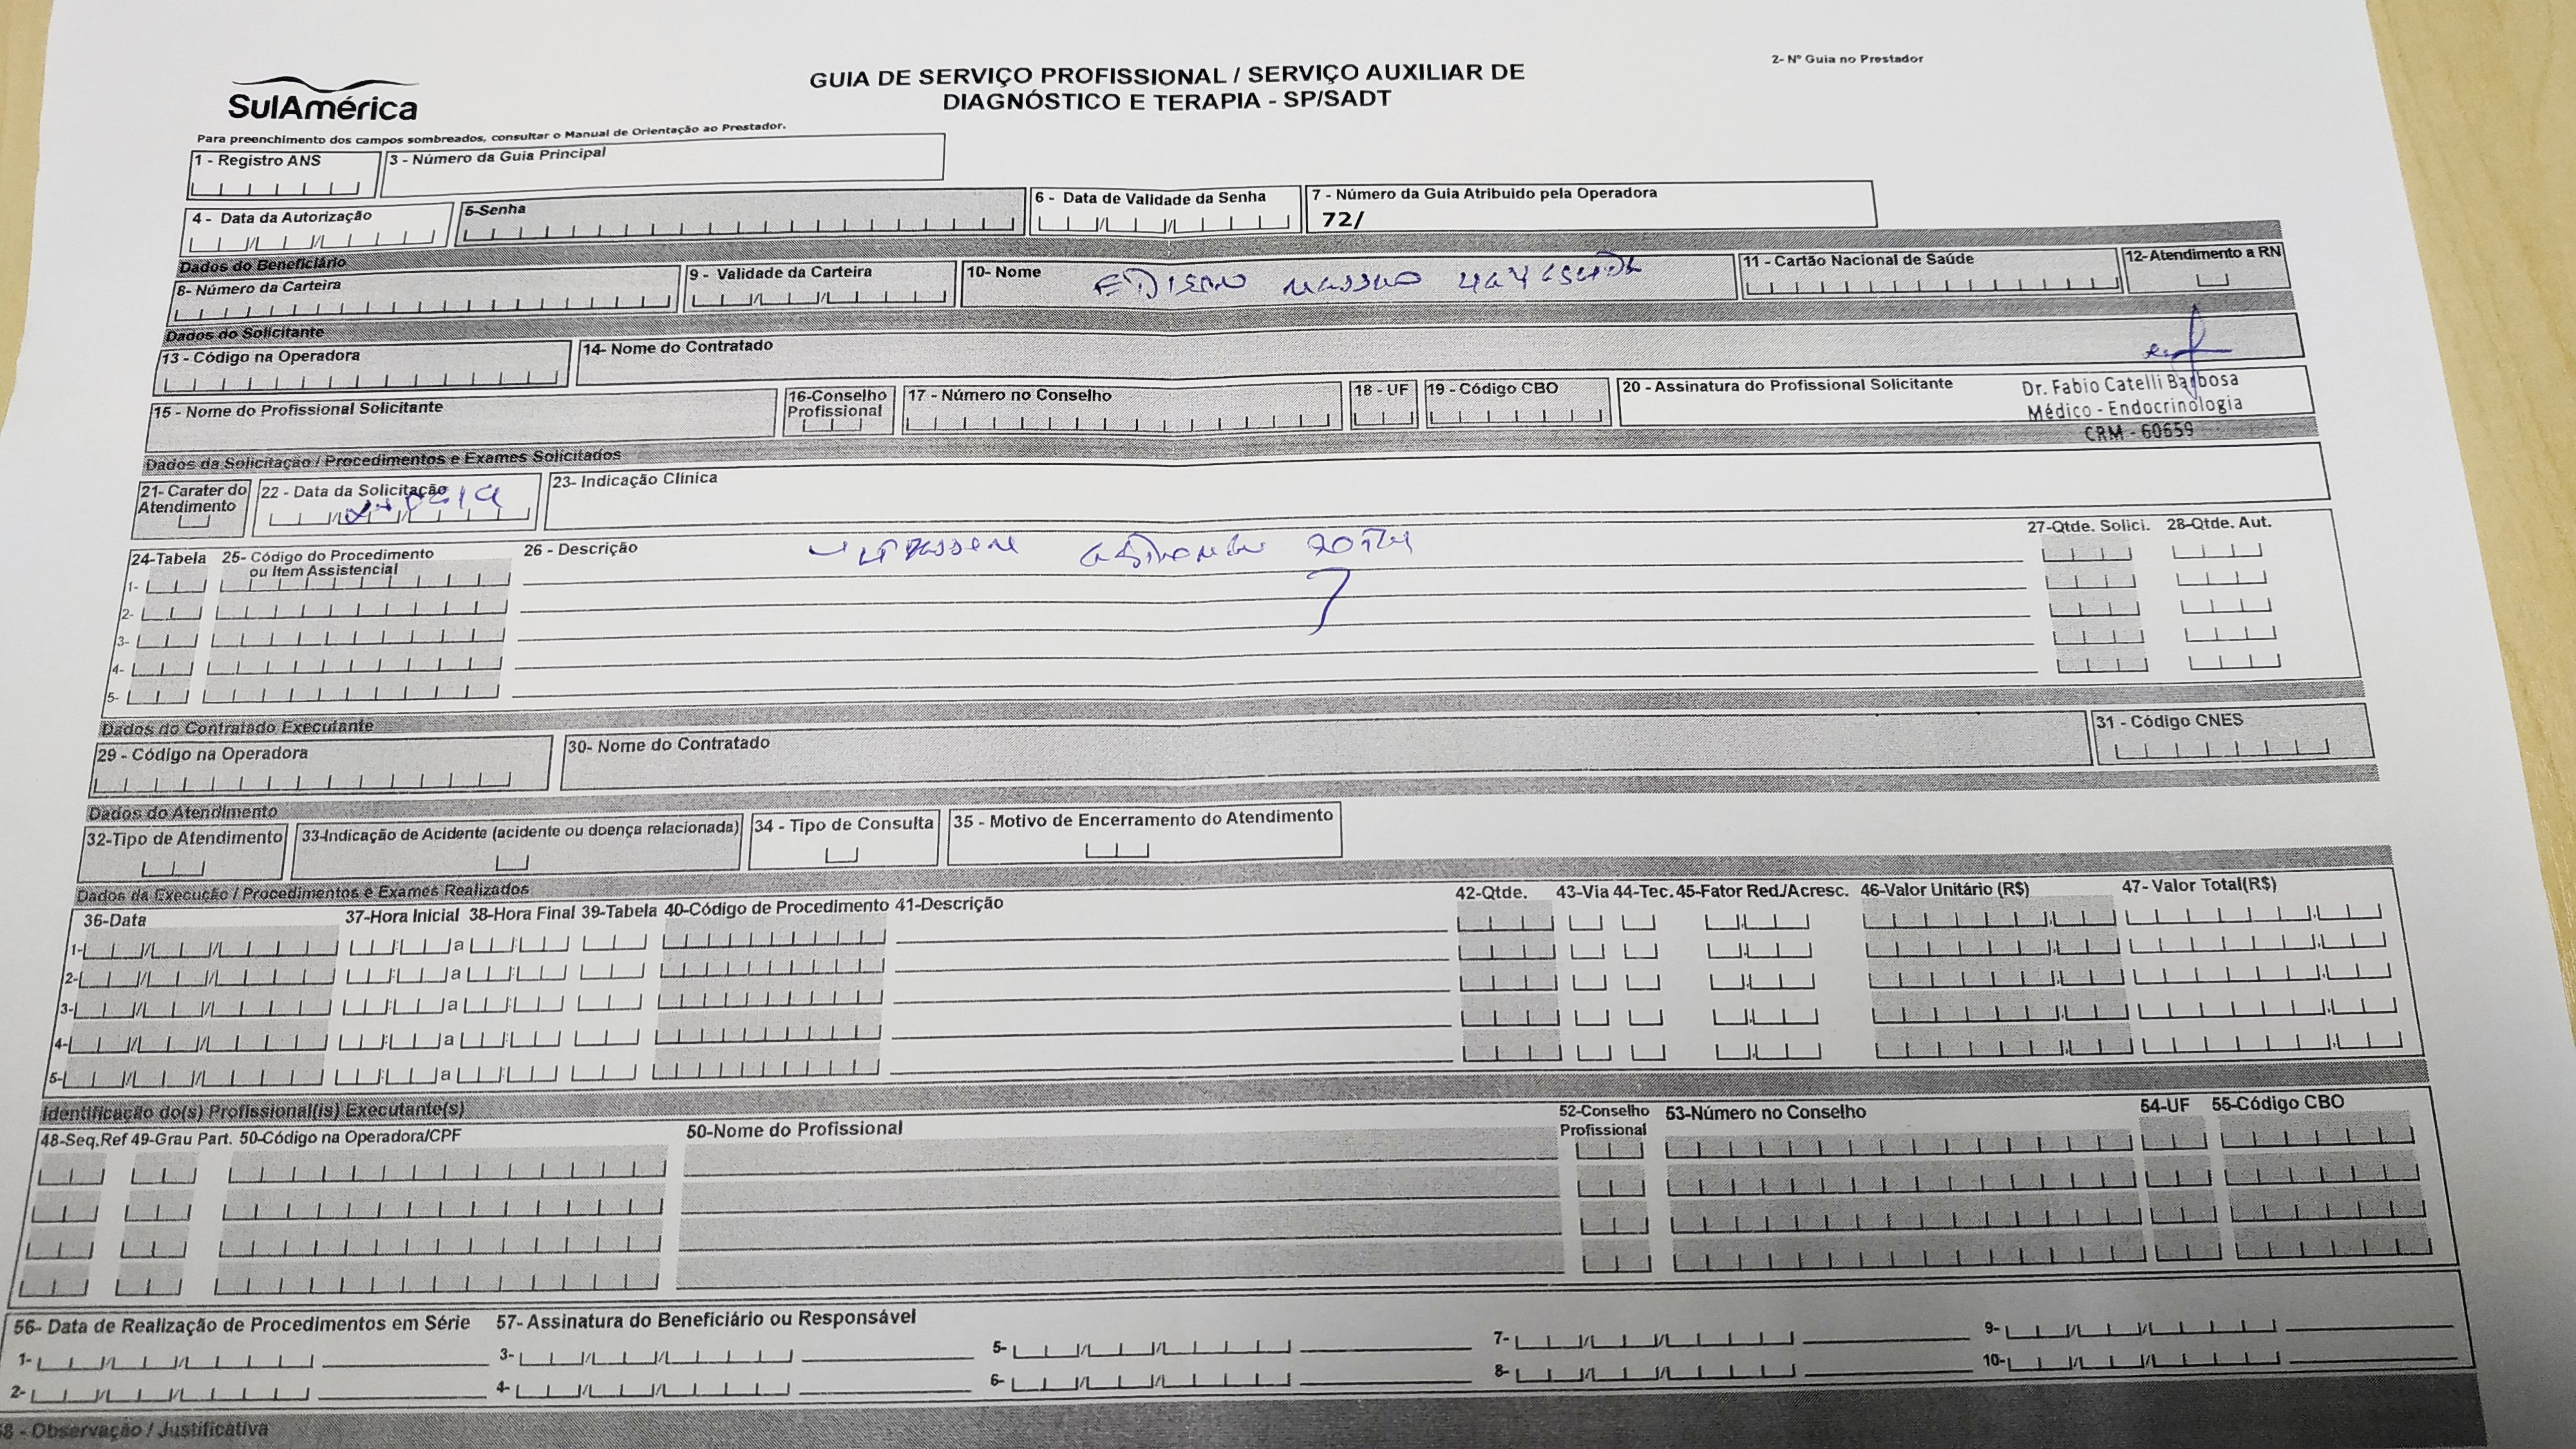 SulAmérica
GUIA DE SERVIÇO PROFISSIONAL / SERVIÇO AUXILIAR DE
DIAGNÓSTICO E TERAPIA - SP/SADT
2- Nº Guia no Prestador
Para preenchimento dos campos sombreados, consultar o Manual de Orientação ao Prestador.
1 - Registro ANS 3 - Número da Guia Principal
4 - Data da Autorização 5-Senha 6 - Data de Validade da Senha 7 - Número da Guia Atribuido pela Operadora
72/
Dados do Beneficiário
8- Número da Carteira 9 - Validade da Carteira 10- Nome 11 - Cartão Nacional de Saúde 12-Atendimento a RN
Dados do Solicitante
13 - Código na Operadora 14- Nome do Contratado
15 - Nome do Profissional Solicitante 16-Conselho Profissional 17 - Número no Conselho 18 - UF 19 - Código CBO 20 - Assinatura do Profissional Solicitante
Dr. Fabio Catelli Barbosa
Médico - Endocrinologia
CRM - 60659
Dados da Solicitação / Procedimentos e Exames Solicitados
21- Carater do Atendimento 22 - Data da Solicitação 23- Indicação Clínica
24-Tabela 25- Código do Procedimento ou Item Assistencial 26 - Descrição 27-Qtde. Solici. 28-Qtde. Aut.
1-
2-
3-
4-
5-
Dados do Contratado Executante
29 - Código na Operadora 30- Nome do Contratado 31 - Código CNES
Dados do Atendimento
32-Tipo de Atendimento 33-Indicação de Acidente (acidente ou doença relacionada) 34 - Tipo de Consulta 35 - Motivo de Encerramento do Atendimento
Dados da Execução / Procedimentos e Exames Realizados
36-Data 37-Hora Inicial 38-Hora Final 39-Tabela 40-Código de Procedimento 41-Descrição 42-Qtde. 43-Via 44-Tec. 45-Fator Red./Acresc. 46-Valor Unitário (R$) 47- Valor Total(R$)
1- a
2- a
3- a
4- a
5- a
Identificação do(s) Profissional(is) Executante(s)
48-Seq.Ref 49-Grau Part. 50-Código na Operadora/CPF 50-Nome do Profissional 52-Conselho Profissional 53-Número no Conselho 54-UF 55-Código CBO
56- Data de Realização de Procedimentos em Série 57- Assinatura do Beneficiário ou Responsável
1- 3- 5- 7- 9-
2- 4- 6- 8- 10-
58 - Observação / Justificativa